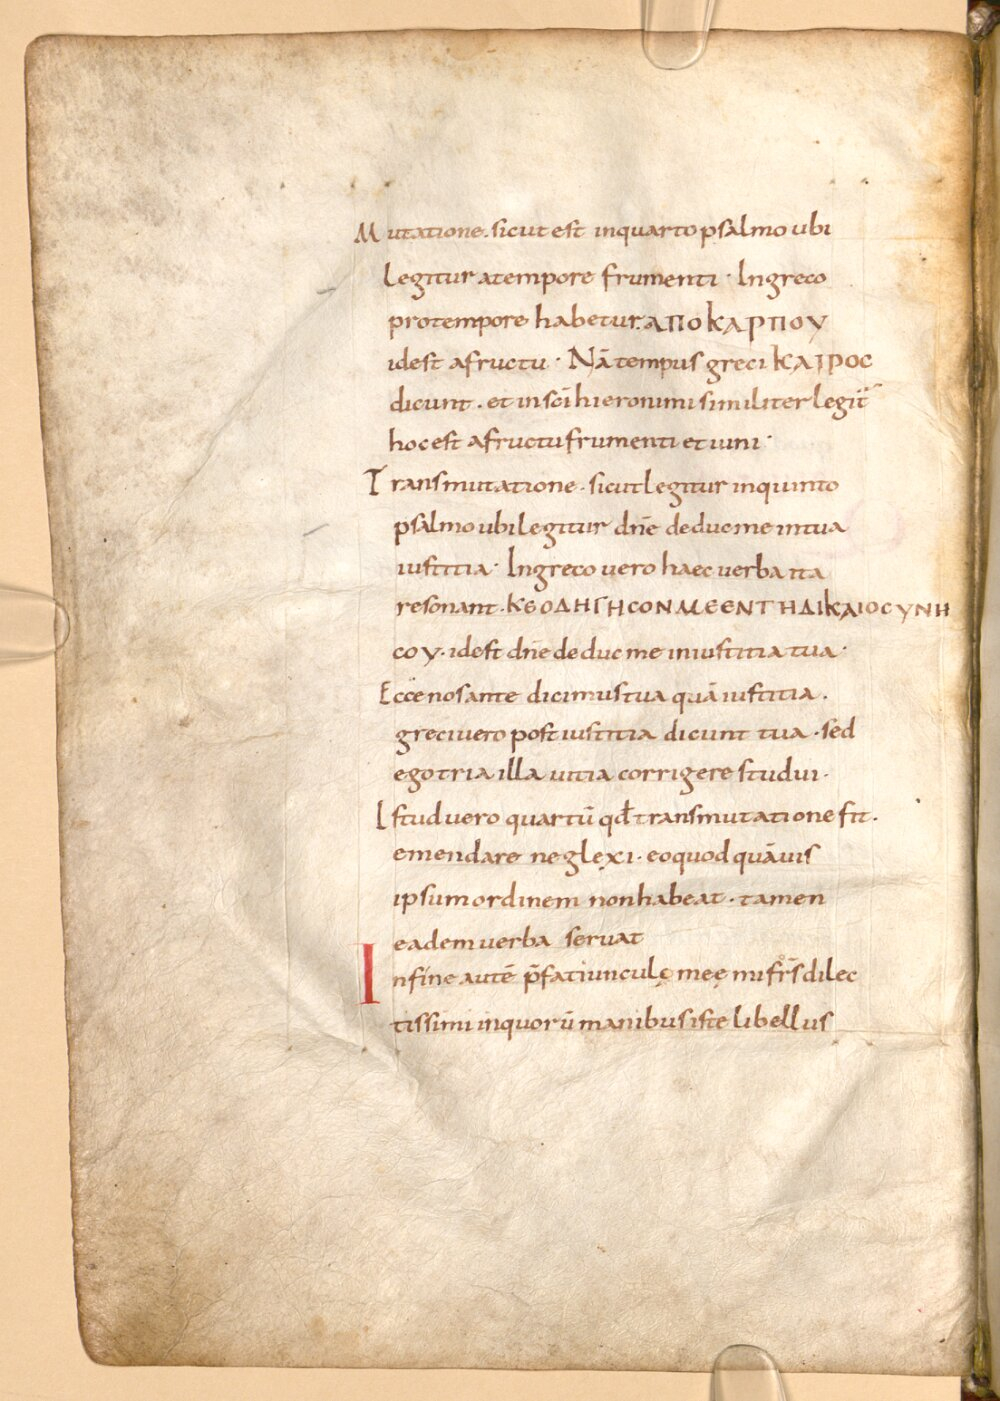 Mutatione. sicut est inquarto psalmo ubi
legitur atempore frumenti · Ingreco
protempore habetur. ΑΠΟΚΑΡΠΟΥ
idest afructu · Nā tempus greci ΚΑΙΡΟC
dicunt . et in sc̄i hieronimi similiter legit̄
hoc est afructu frumenti et uini ·
Transmutatione . sicut legitur inquinto
psalmo ubi legitur dn̄e deduc me intua
iustitia · Ingreco uero haec uerba ita
resonant · ΚΕΟΔΗΓΗCΟΝ ΜΕΕΝΤΗΔΙΚΑΙΟCΥΝΗ
CΟΥ · idest dn̄e deduc me iniustitia tua ·
Ecce nos ante dicimus tua quā iustitia .
greci uero post iustitia dicunt tua · sed
ego tria illa uitia corrigere studui ·
Istud uero quartū qd̄ transmutatione fit .
emendare neglexi · eo quod quāuis
ipsum ordinem non habeat · tamen
eadem uerba seruat
Infine autē p̄fatiunculę meę mi fr̄s dilec
tissimi inquorū manibus iste libellus